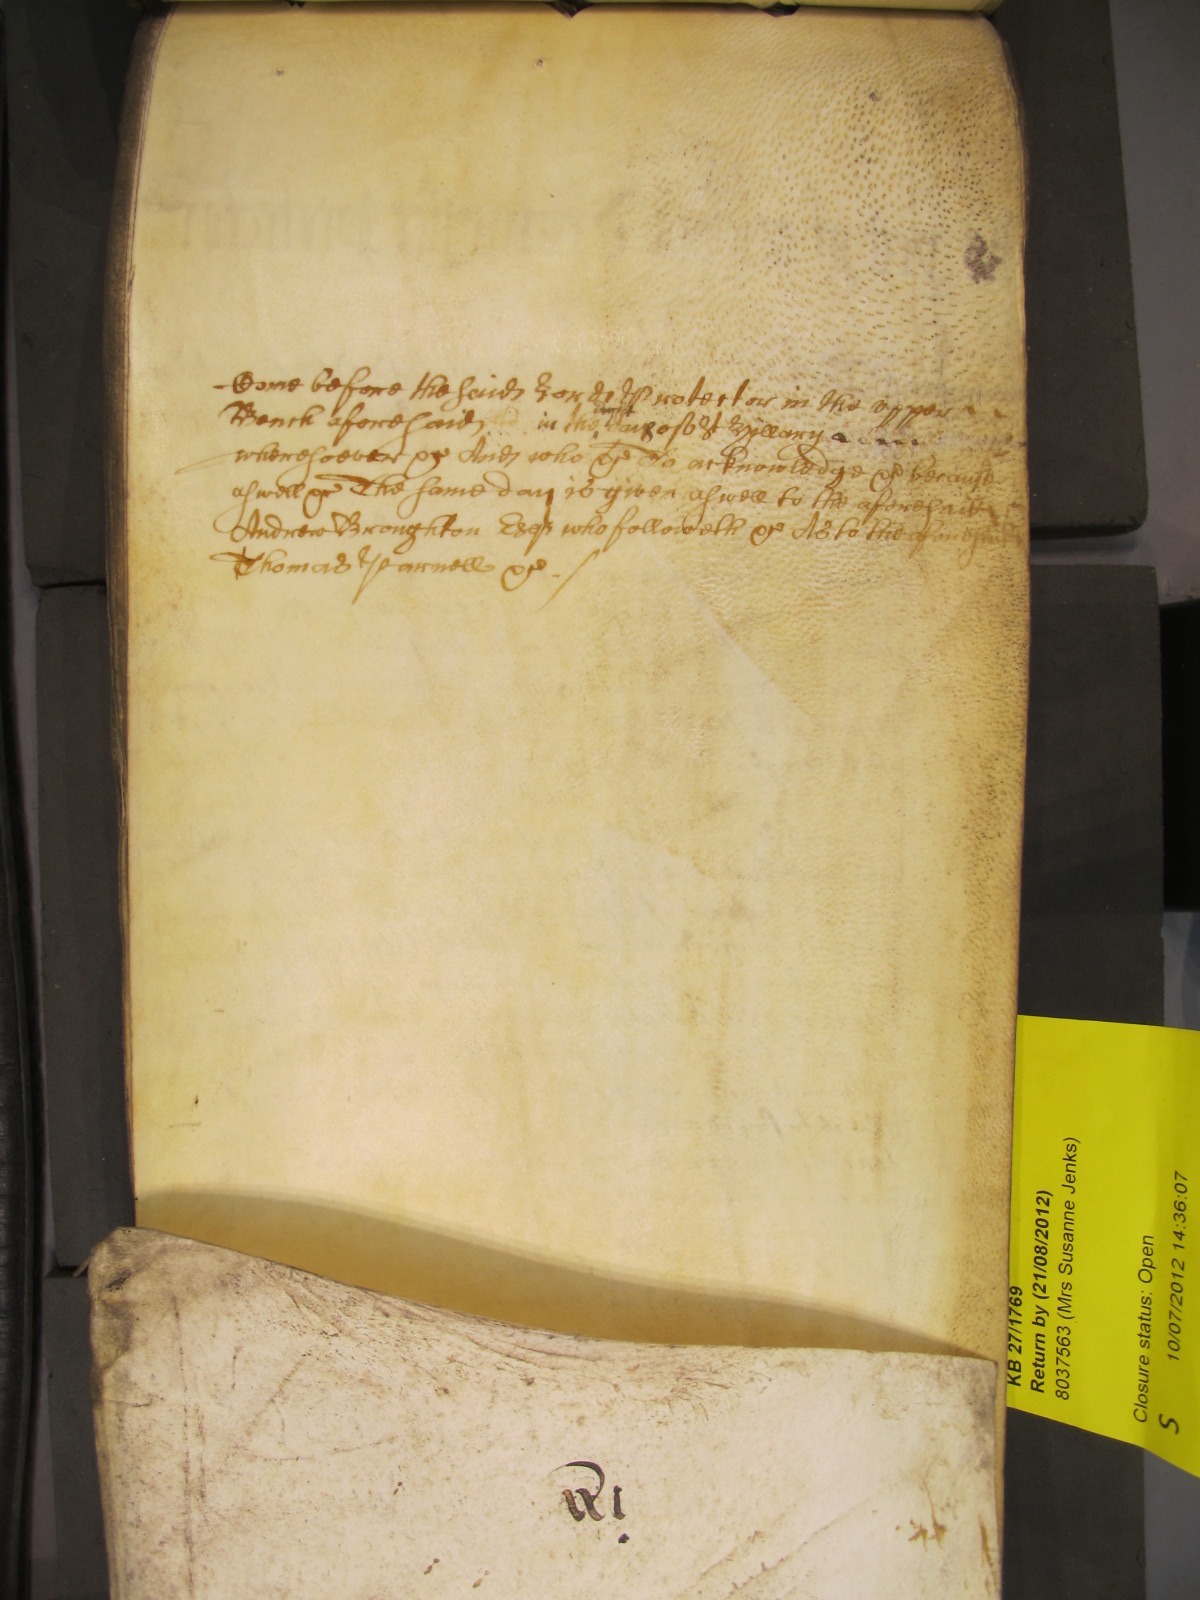 Come before the said Lord Protector in the upper
Bench aforesaid in the Octaves of St Hyllary
wheresoever &c And who &c To acknowledge &c because
aswell &c The same day is given aswell to the aforesaid
Andrew Broughton Esqr who followeth &c As to the aforesaid
Thomas Yearnell &c
KB 27/1769
Return by (21/08/2012)
8037563 (Mrs Susanne Jenks)
Closure status: Open
10/07/2012 14:36:07
S